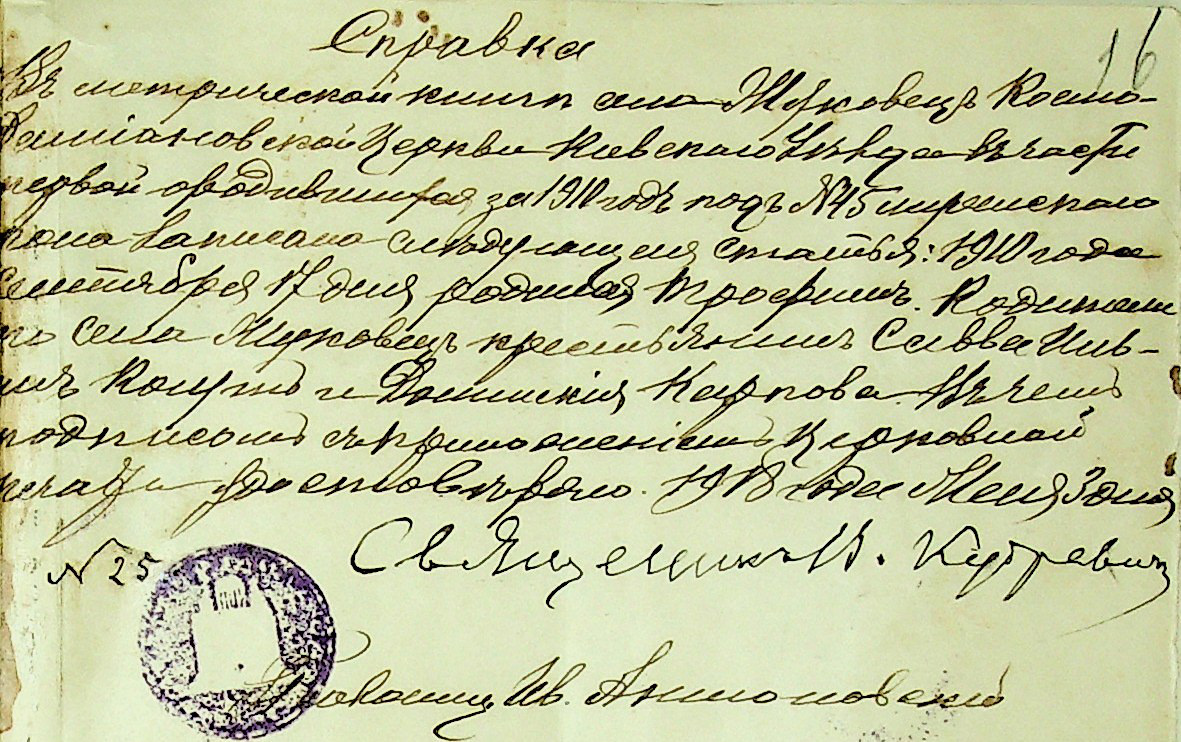 Справка
16
Въ метрической книгѣ села Жуковецъ Космо-
Даміановской Церкви Кіевскаго Уѣзда въ части
первой о родившихся за 1910 годъ подъ №45 мужескаго
пола записана слѣдующая статья: 1910 года
Сентября 17 дня родился Трофимъ. Родители
его села Жуковецъ крестьянинъ Савва Иль-
инъ и Домникія Карпова. Въ чемъ
подписомъ съ приложеніемъ церковной
печати удостовѣряю. 1918 года Мая 3 дня
№ 25
Священникъ В.
Псаломщ Ив. Антоновскій